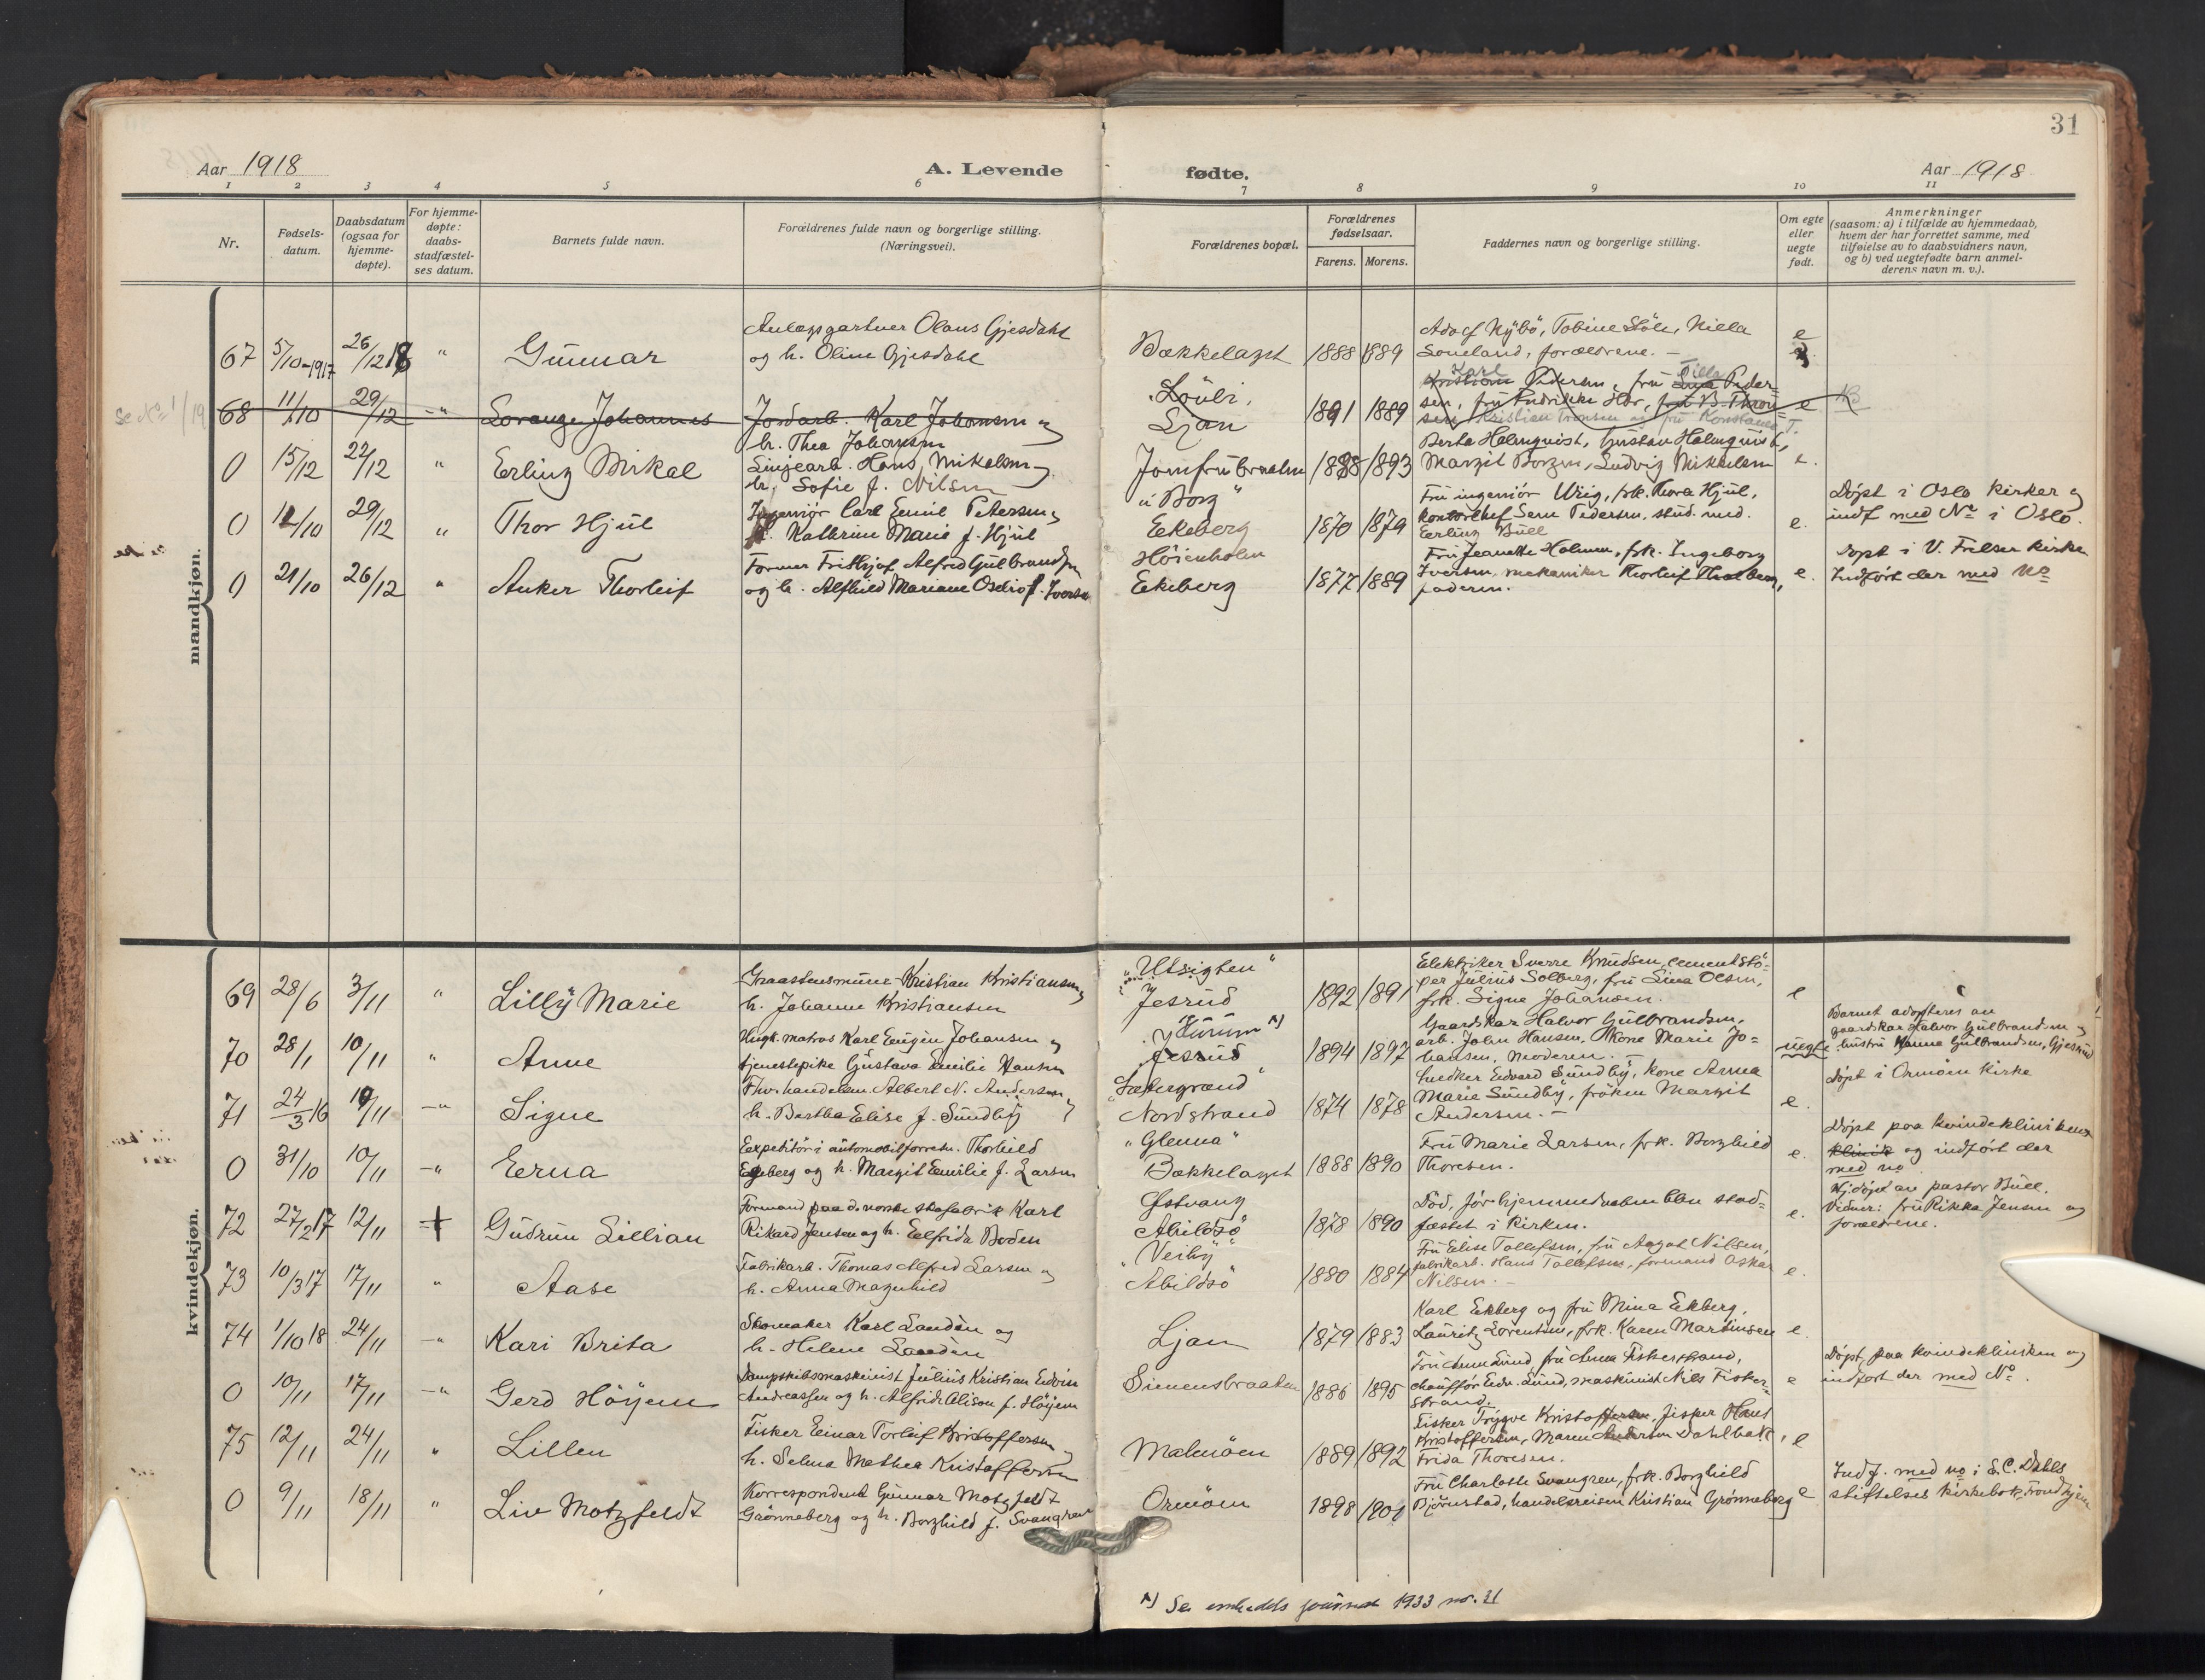 31
Aar 1918
A. Levende
fødte.
Aar 1918
1 2 3 4 5 6 7 8 9 10 11
Nr.
Fødsels-
datum.
Daabsdatum
(ogsaa for
hjemme-
døpte).
For hjemme-
døpte:
daabs-
stadfæstel-
ses datum.
Barnets fulde navn.
Forældrenes fulde navn og borgerlige stilling.
(Næringsvei).
Forældrenes bopæl.
Forældrenes
fødselsaar.
Farens. Morens.
Faddernes navn og borgerlige stilling.
Om egte
eller
uegte
født.
Anmerkninger
(saasom: a) i tilfælde av hjemmedaab,
hvem der har forrettet samme, med
tilføielse av to daabsvidners navn,
og b) ved uegtefødte barn anmel-
derens navn m. v.).
mandkjøn.
Anlægsgartner Olaus Gjesdahl
67 5/10-1917 26/12 18 " Gunnar og h. Oline Gjesdahl
Bækkelaget 1888 1889
Adolf Nybö, Tobine Höle, Nilla
Soneland, forældrene. –
e
Se No 1/19
68 11/10 29/12 -"- Sorange Johannes Jordarb. Karl Johansen og
h. Thea Johansen
Ljan 1891 1889
Karl
Kristian Pedersen, fru Peder=
sen, fru Fredrikke Hör,
Kristian Tronsen fru Konstanse T.
e
0 15/12 22/12 " Erling Mikal Linjearb. Hans Mikalsen og
h. Sofie f. Nilsen
Jomfrubraaten 1885 1893
Berta Holmquist, Gustav Holmquist,
Margit Borgen, Ludvig Mikkelsen
e.
0 12/10 29/12 " Thor Hjul Ingeniør Carl Emil Petersen og
h. Kathrine Marie f. Hjul
"Borg"
Ekeberg 1870 1879
Fru ingeniör Urig, frk. Thora Hjul,
kontorchef Sem Pedersen, stud. med.
Erling Bull
e.
Döpt i Oslo kirke og
indf med No i Oslo.
0 21/10 26/12 " Anker Thorleif Former Frithjof Alfred Gulbrandsen
og h. Alfhild Mariane Oselio f. Iversen
Höienholm
Ekeberg 1877 1889
Fru Jeanette Holmen, frk. Ingeborg
Iversen, mekaniker Thorleif
faderen.
e.
Döpt i V. Frelser kirke
Indfört der med No
kvindekjøn.
69 28/6 3/11 " Lilly Marie Kristian Kristiansen og
h. Johanne Kristiansen
"Utsigten"
Jesrud 1892 1891
Elektriker Sverre Knudsen, cementstö=
per Julius Solberg, fru Lina Olsen,
frk. Signe Johansen.
e
70 28/1 10/11 " Anne Hugk. matros Karl Eugen Johansen og
tjenestepike Gustava Emilie Hansen
Jesrud 1894 1897
Gaardskar Halvor Gulbrandsen,
arb. John Hansen, kone Marie Jo=
hansen, moderen. –
uegte
Barnet adopteres av
gaardskar Halvor Gulbrandsen og
hustru Hanna Gulbrandsen, Gjesrud
71 24/3 16 10/11 -"- Signe Thv. handelsm. Albert N. Andersen og
h. Bertha Elise f. Sundby
"Sætergrænd"
Nordstrand 1874 1878
Snedker Edvard Sundby, kone Anna
Marie Sundby, fröken Margit
Andersen. –
e.
Döpt i Ormöen kirke
0 31/10 10/11 -"- Erna Expeditör i automobilforretn. Thorleif
Egeberg og h. Margit Emilie f. Larsen
"Glenna"
Bækkelaget 1888 1890
Fru Marie Larsen, frk. Borghild
Thoresen.
e.
Döpt paa kvindekliniken
klinik og indfört der
med no
72 27/2 17 12/11 Gudrun Lillian Formand paa d. norske skofabrik Karl
Rikard Jensen og h. Elfrida Boden
Östvang
Abildsö 1878 1890
Död, för hjemmedaaben blev stad=
fæstet i kirken.
e.
Hj.döpt av pastor Bull.
Vidner: fru Rikka Jensen og
forældrene.
73 10/3 17 17/11 " Aase Fabrikarb. Thomas Alfred Larsen og
h. Anna Magnhild
"Veiby"
Abildsö 1880 1884
Fru Elise Tollefsen, fru Aagot Nilsen,
fabrikarb. Hans Tollefsen, formand Oskar
Nilsen. –
e.
74 1/10 18 24/11 -"- Kari Brita Skomaker Karl Landén og
h. Helene Landén
Ljan 1879 1883
Karl Ekberg og fru Mina Ekberg,
Lauritz Lorentsen, frk. Karen Martinsen
e.
0 10/11 17/11 -"- Gerd Höyem Dampskibsmaskinist Julius Kristian Edvin
Andreassen og h. Alfride Alison f. Höyem
Simensbraaten 1886 1895
Fru Anna Lund, fru Anna Fiskerstrand,
chaufför Edv. Lund, maskinist Nils Fisker=
strand.
e
Döpt paa kvindekliniken og
indfört der med No.
75 12/11 24/11 " Lillen Fisker Einar Torleif Kristoffersen og
h. Selma Mathea Kristoffersen
Malmöen 1889 1892
Fisker Trygve Kristoffersen, fisker Hans
Kristoffersen, Maren Andersen Dahlbak,
Frida Thoresen.
e
0 9/11 18/11 " Liv Motzfeldt Korrespondent Gunnar Motzfeldt
Grönneberg og h. Borghild f. Svangren
Ormöen 1898 1901
Fru Charlotte Svangren, frk. Borghild
Björnstad, handelsreisen Kristian Grönneberg
e
Indf. med no i E.C. Dahls
stiftelses kirkebok, Trondhjem
x) Se embedds journal 1933 nr. 31